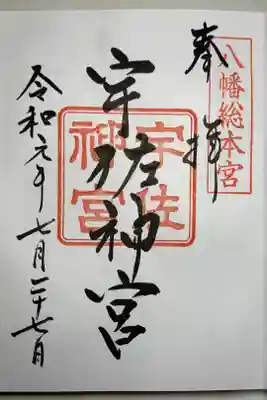 八幡総本宮
奉拝
宇佐神宮
宇佐
神宮
令和元年七月二十七日